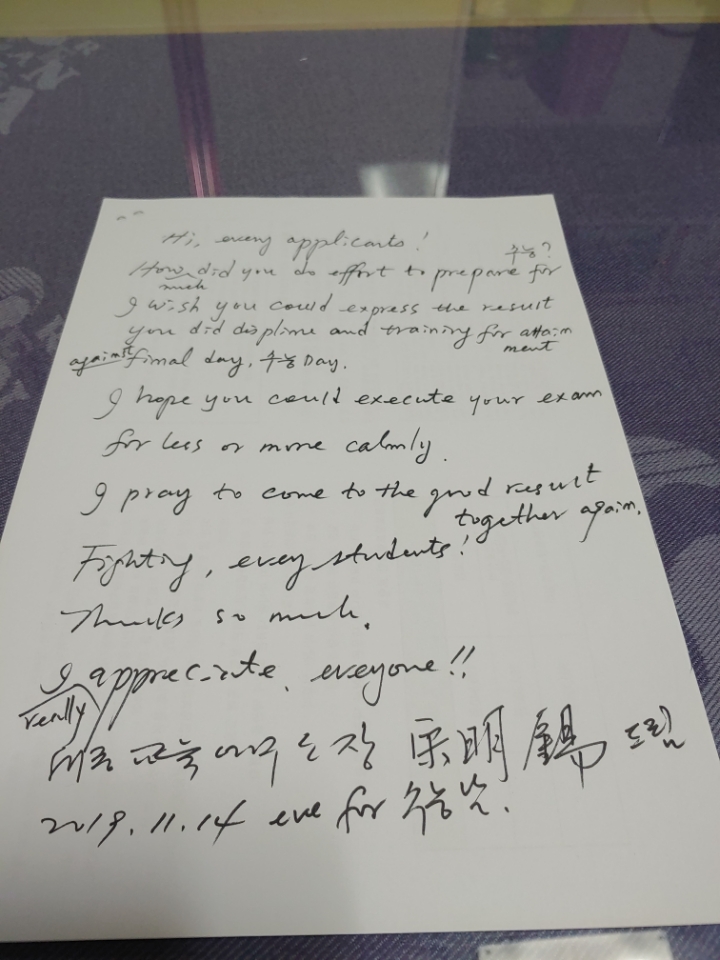 Hi, every applicants!
How much did you do effort to prepare for 수능?
I wish you could express the result
you did displine and training for attainment
against final day, 수능 Day.
I hope you could execute your exam
for less or more calmly.
I pray to come to the good result
together again.
Fighting, every students!
Thanks so much.
I really appreciate. everyone!!
교육 장 宋明錫 드림
2019.11.14 eve for 수능